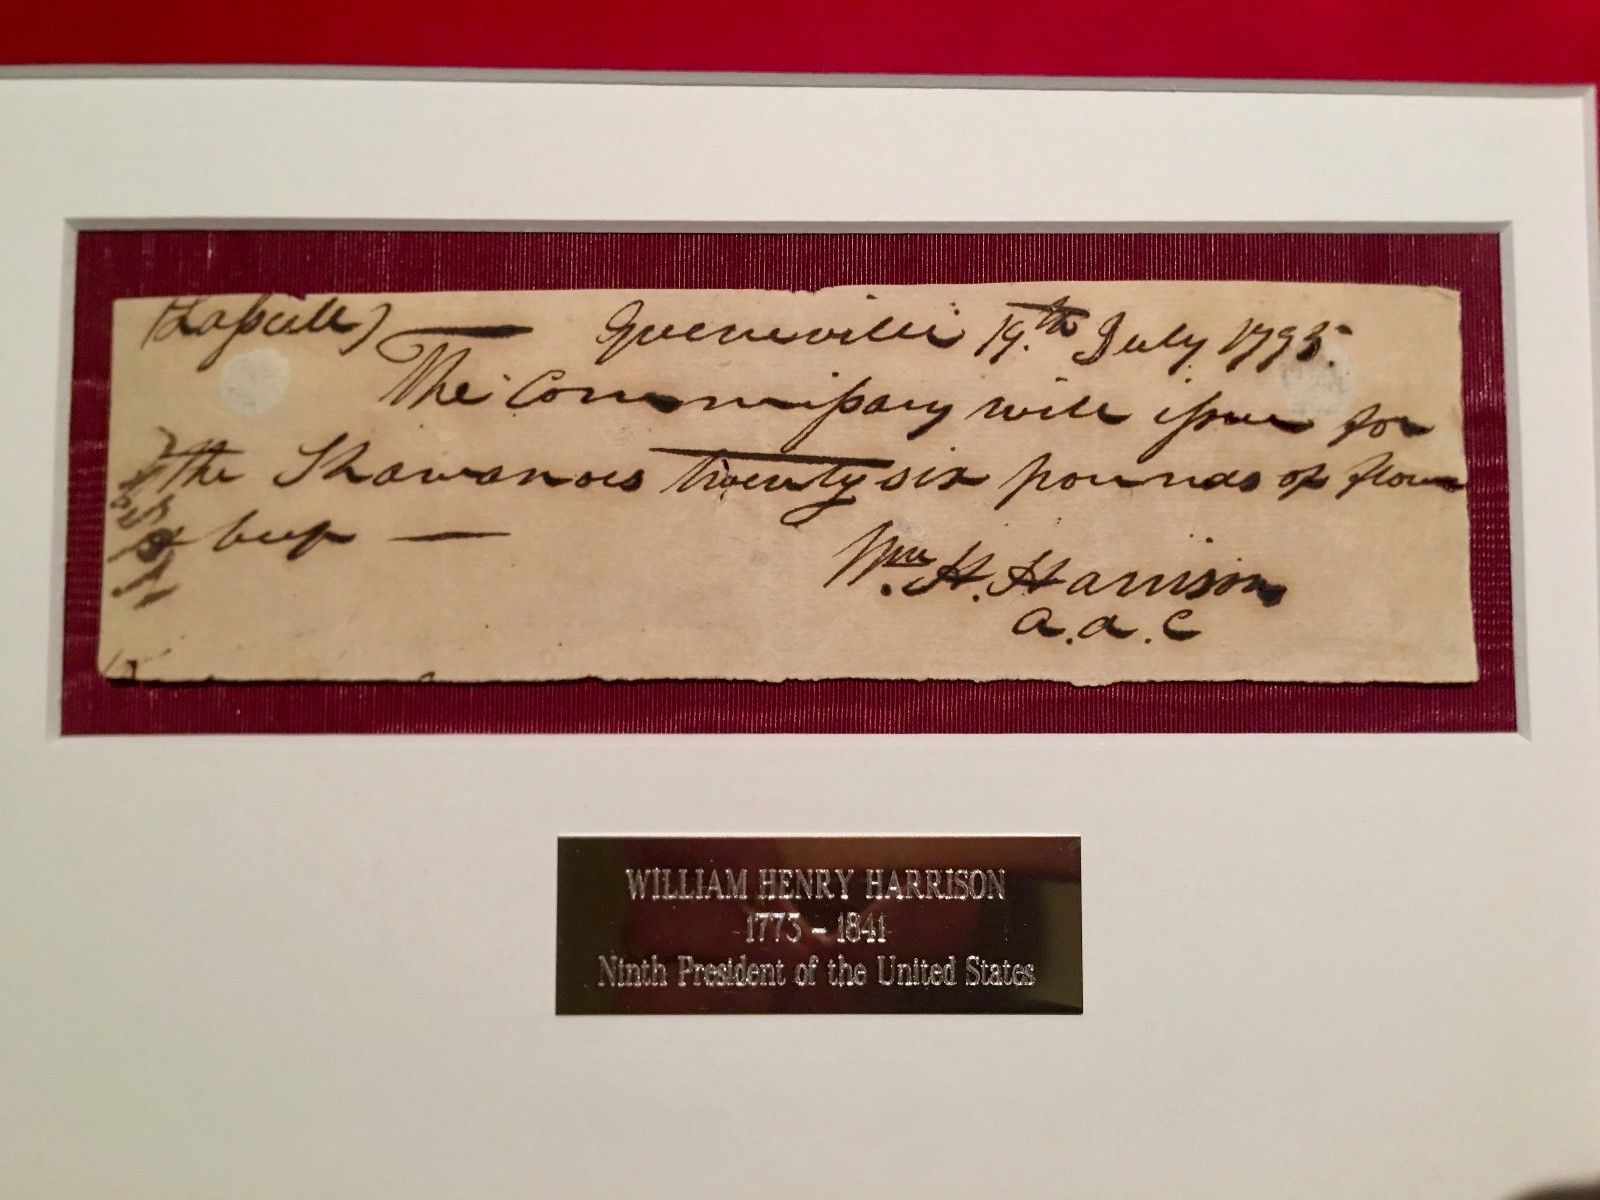 (Lasselle) — Greeneville 19.th July 1795.
The Commissary will issue for
the Shawanoes twenty six pounds of flour
& beef —
Wm. H. Harrison
a.a.c
WILLIAM HENRY HARRISON
1773 – 1841
Ninth President of the United States